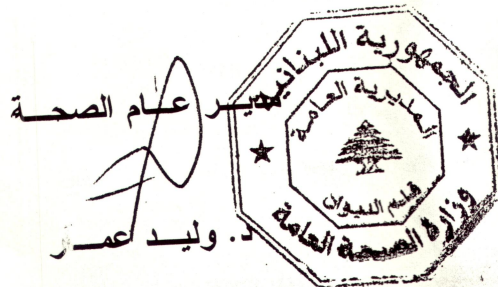 مديـر عـام الصحـة
د. وليـد عمـر
الجمهورية اللبنانية
المديرية العامة
قلم الديوان
وزارة الصحة العامة